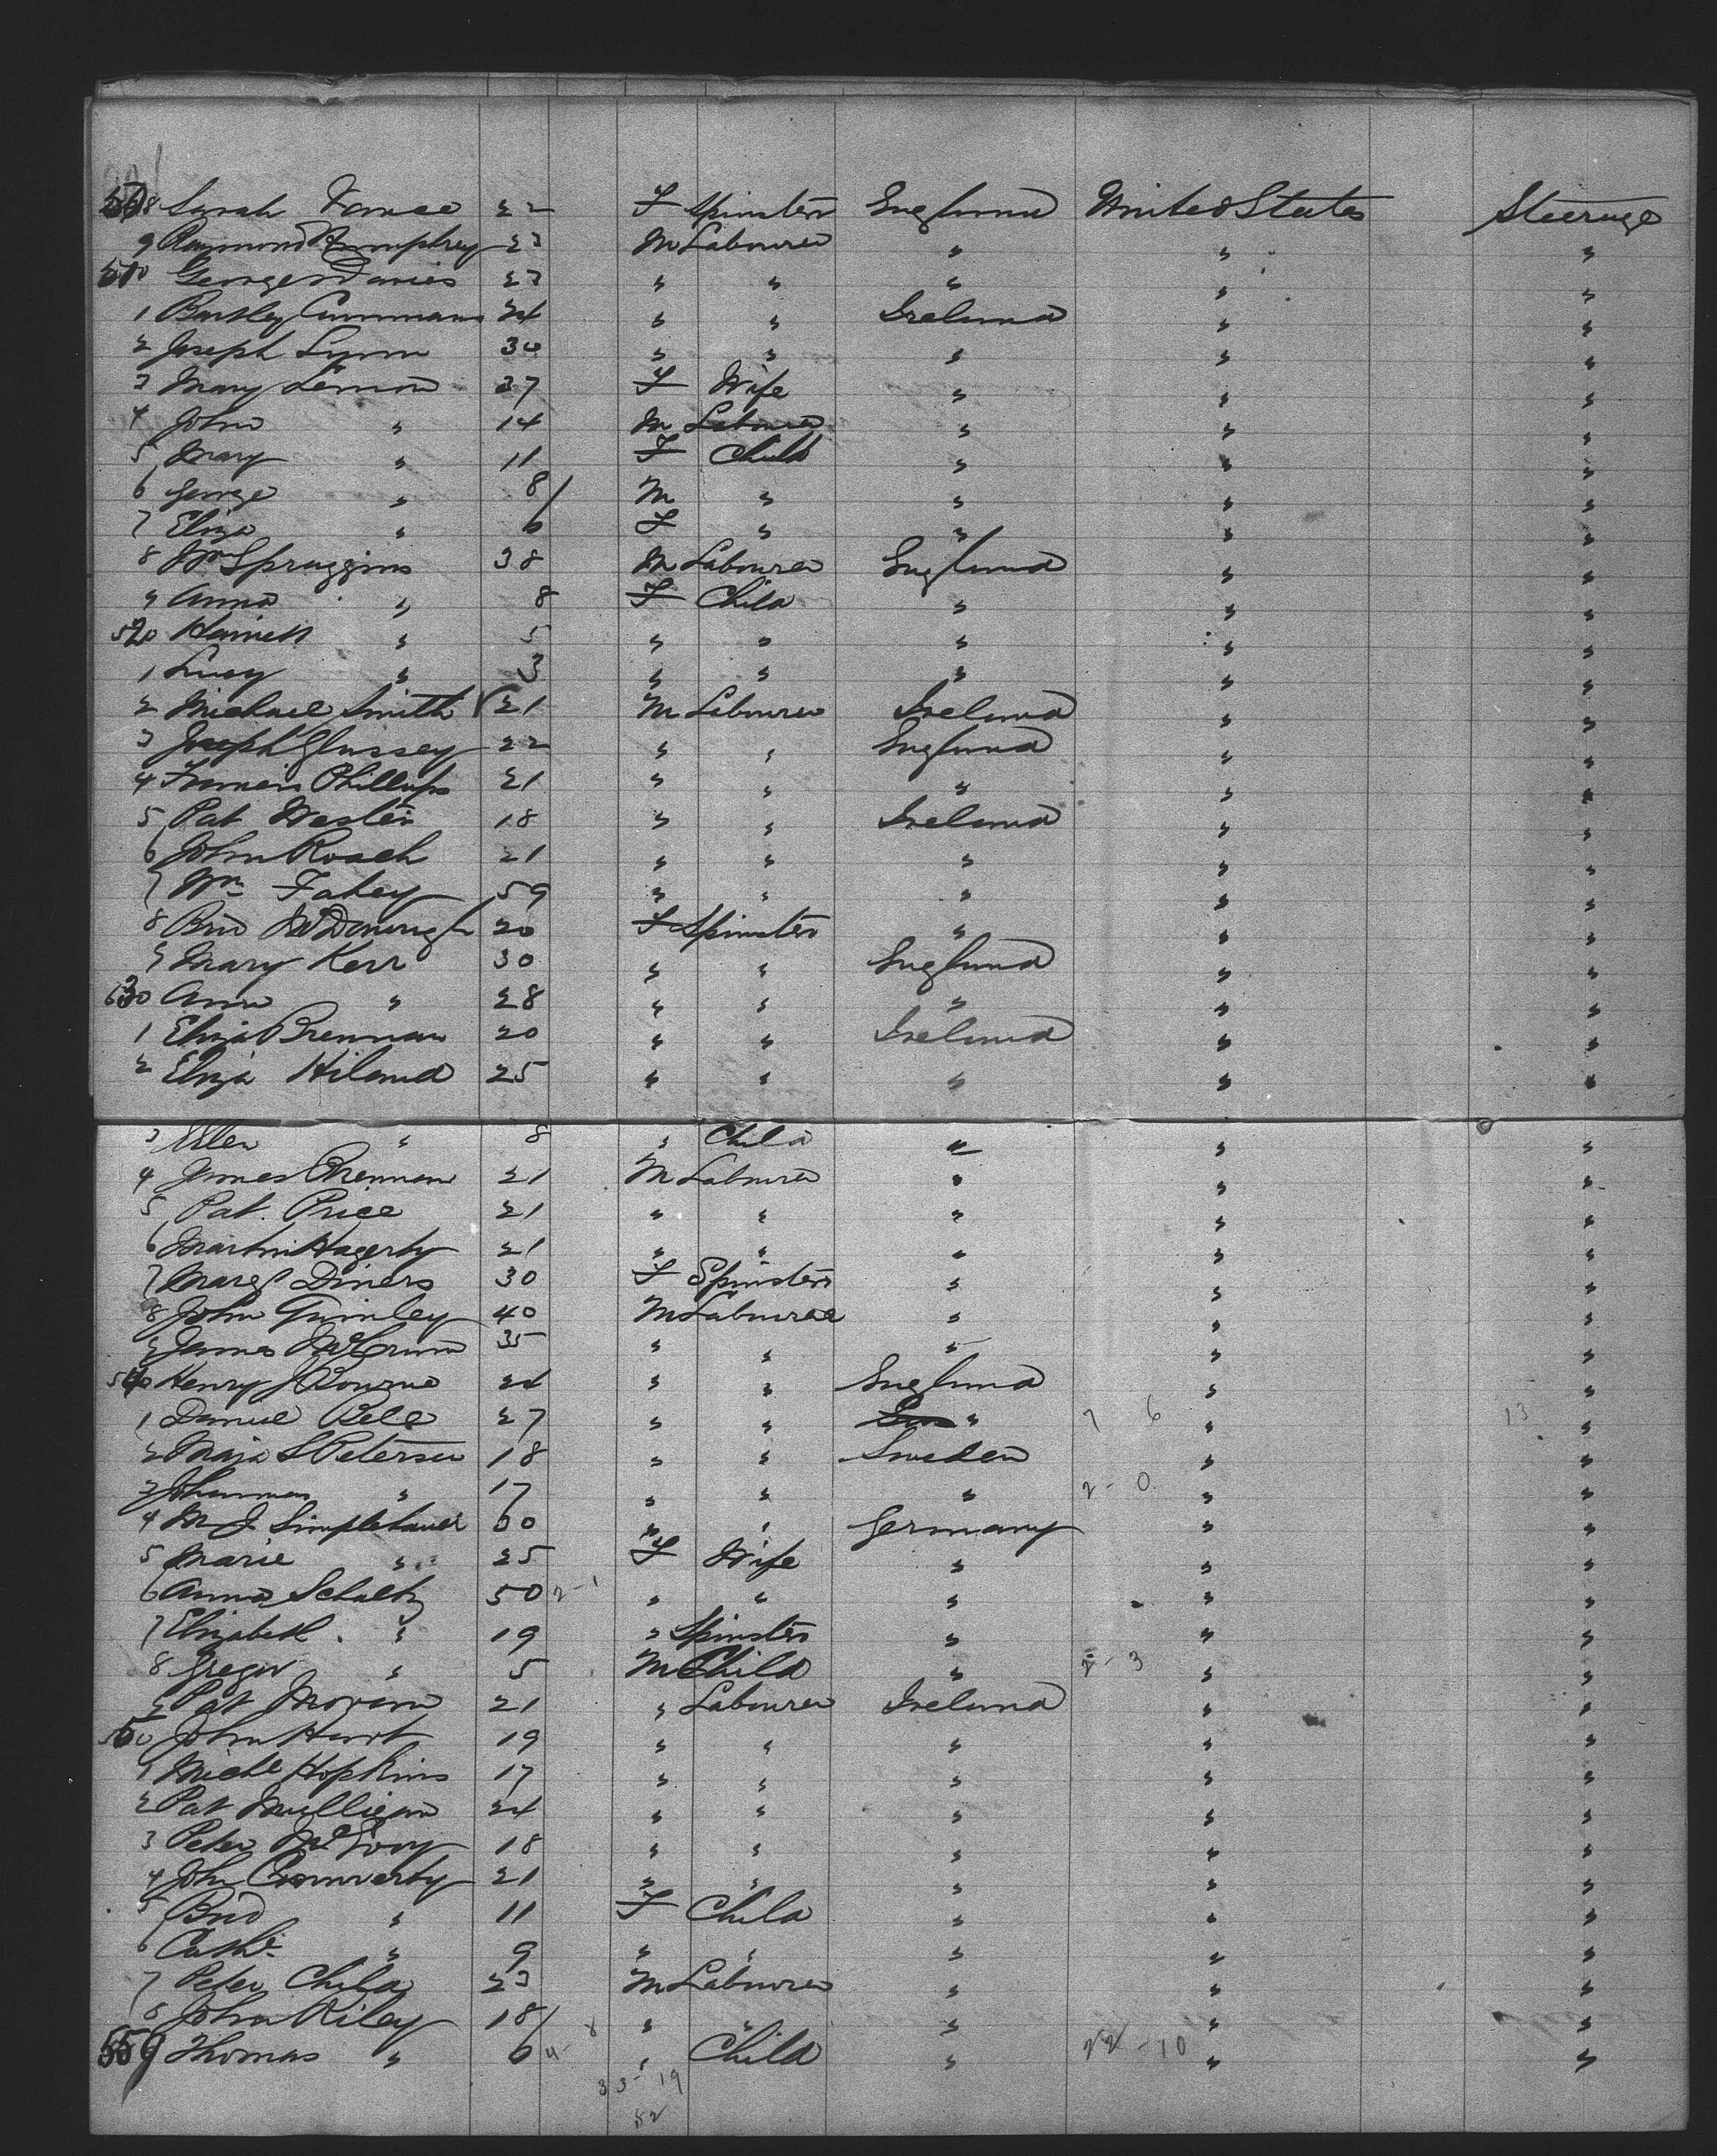 8 Sarah 22 F Spinster England United States Steerage
9 Raymond Humphrey 23 M Labourer " " "
George Davies 23 " " " " "
1 Bartley Cummans 24 " " Ireland " "
2 Joseph Lynn 30 " " " " "
3 Mary Lemon 37 F Wife " " "
4 John " 14 M Labourer " " "
5 Mary " 11 F Child " " "
6 George " 8 M " " " "
7 Eliza " 6 F " " " "
8 Wm Spraggins 38 M Labourer England " "
9 Anna " 8 F Child " " "
520 Harriett " 5 " " " " "
1 Lucy " 3 " " " " "
2 Michael Smith 21 M Labourer Ireland " "
3 Joseph Glassey 22 " " England " "
4 Francis Phillips 21 " " " " "
5 Pat Weston 18 " " Ireland " "
6 John Roach 21 " " " " "
7 Wm Fahey 59 " " " " "
8 Brid McDonough 20 F Spinster " " "
9 Mary Kerr 30 " " England " "
30 Ann " 28 " " " " "
1 Eliza Brennan 20 " " Ireland " "
2 Eliza Hiland 25 " " " " "
3 Ellen " 8 " Child " " "
4 James Brennan 21 M Labourer " " "
5 Pat. Price 21 " " " " "
6 Martin Hagerty 21 " " " " "
7 Margt Diners 30 F Spinster " " "
8 John Gumley 40 M Labourer " " "
9 James 35 " " " " "
540 Henry J Bourne 24 " " England " "
1 Daniel Bell 27 " " " 7 6 " 13 "
2 Maja S Petersen 18 " " Sweden " "
3 Johannes " 17 " " " 2-0 " "
4 M J 60 " " Germany " "
5 Marie " 25 F Wife " " "
6 Anna Schultz 50 2-1 " " " " "
7 Elizabeth " 19 " Spinster " " "
8 Gregor " 5 M Child " 2-3 " "
9 Pat Moran 21 " Labourer Ireland " "
550 John Hunt 19 " " " " "
1 Michl Hopkins 17 " " " " "
2 Pat Mulligan 24 " " " " "
3 Peter McEvoy 18 " " " " "
4 John 21 " " " " "
5 Brid " 11 F Child " " "
6 Cathe " 9 " " " " "
7 Peter Child 23 M Labourer " " "
8 John Riley 18 " " " " "
559 Thomas " 6 " Child " 22-10 " "
33-19
52